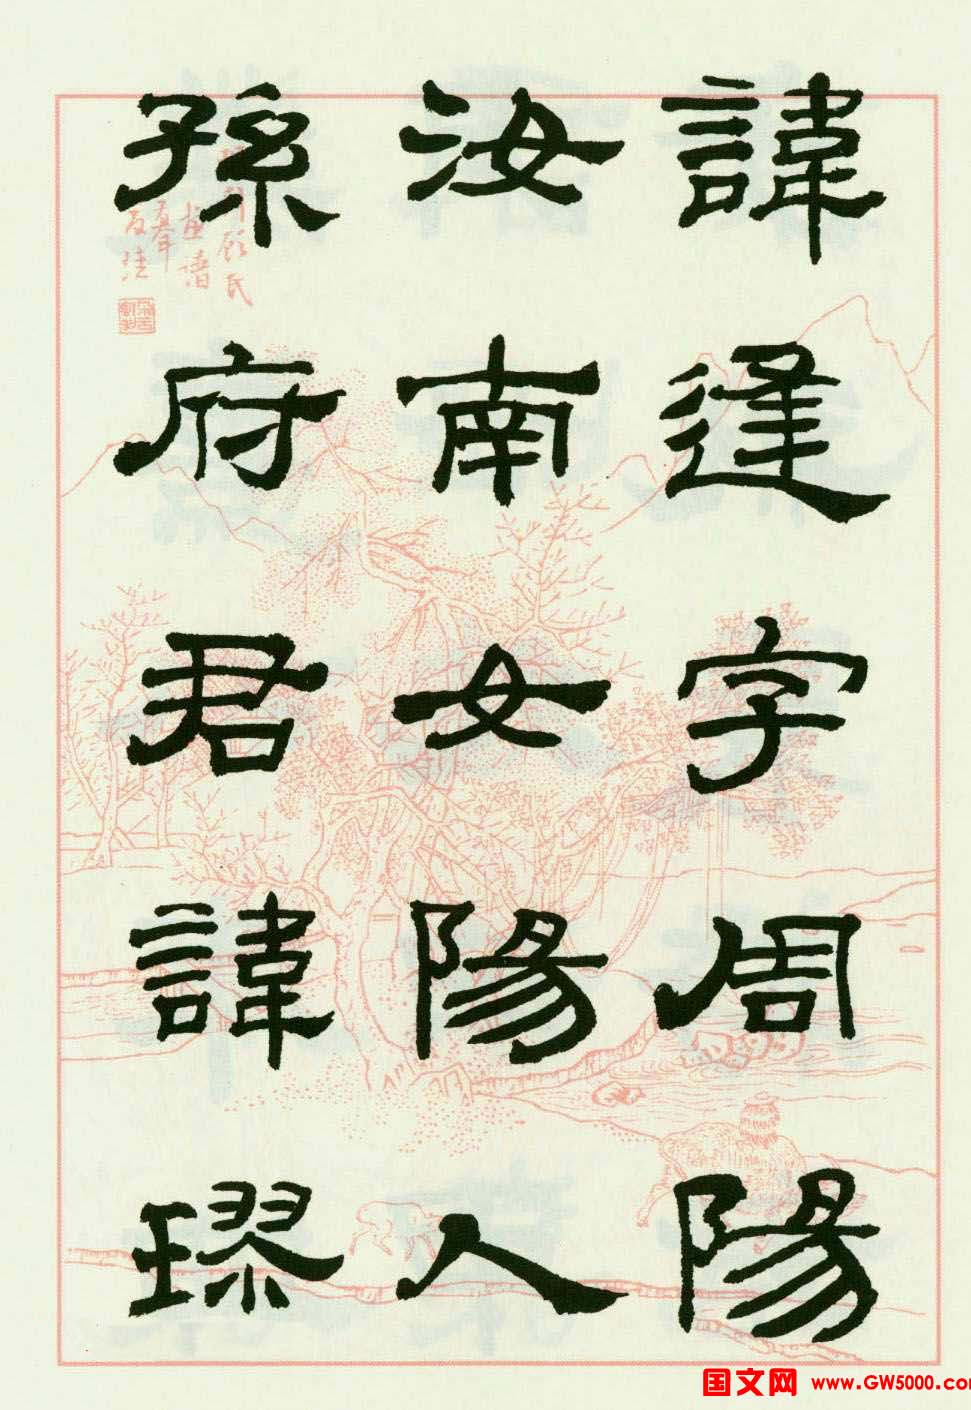 諱逢字周陽
汝南女陽人
孫府君諱璆
国文网 www.GW5000.com